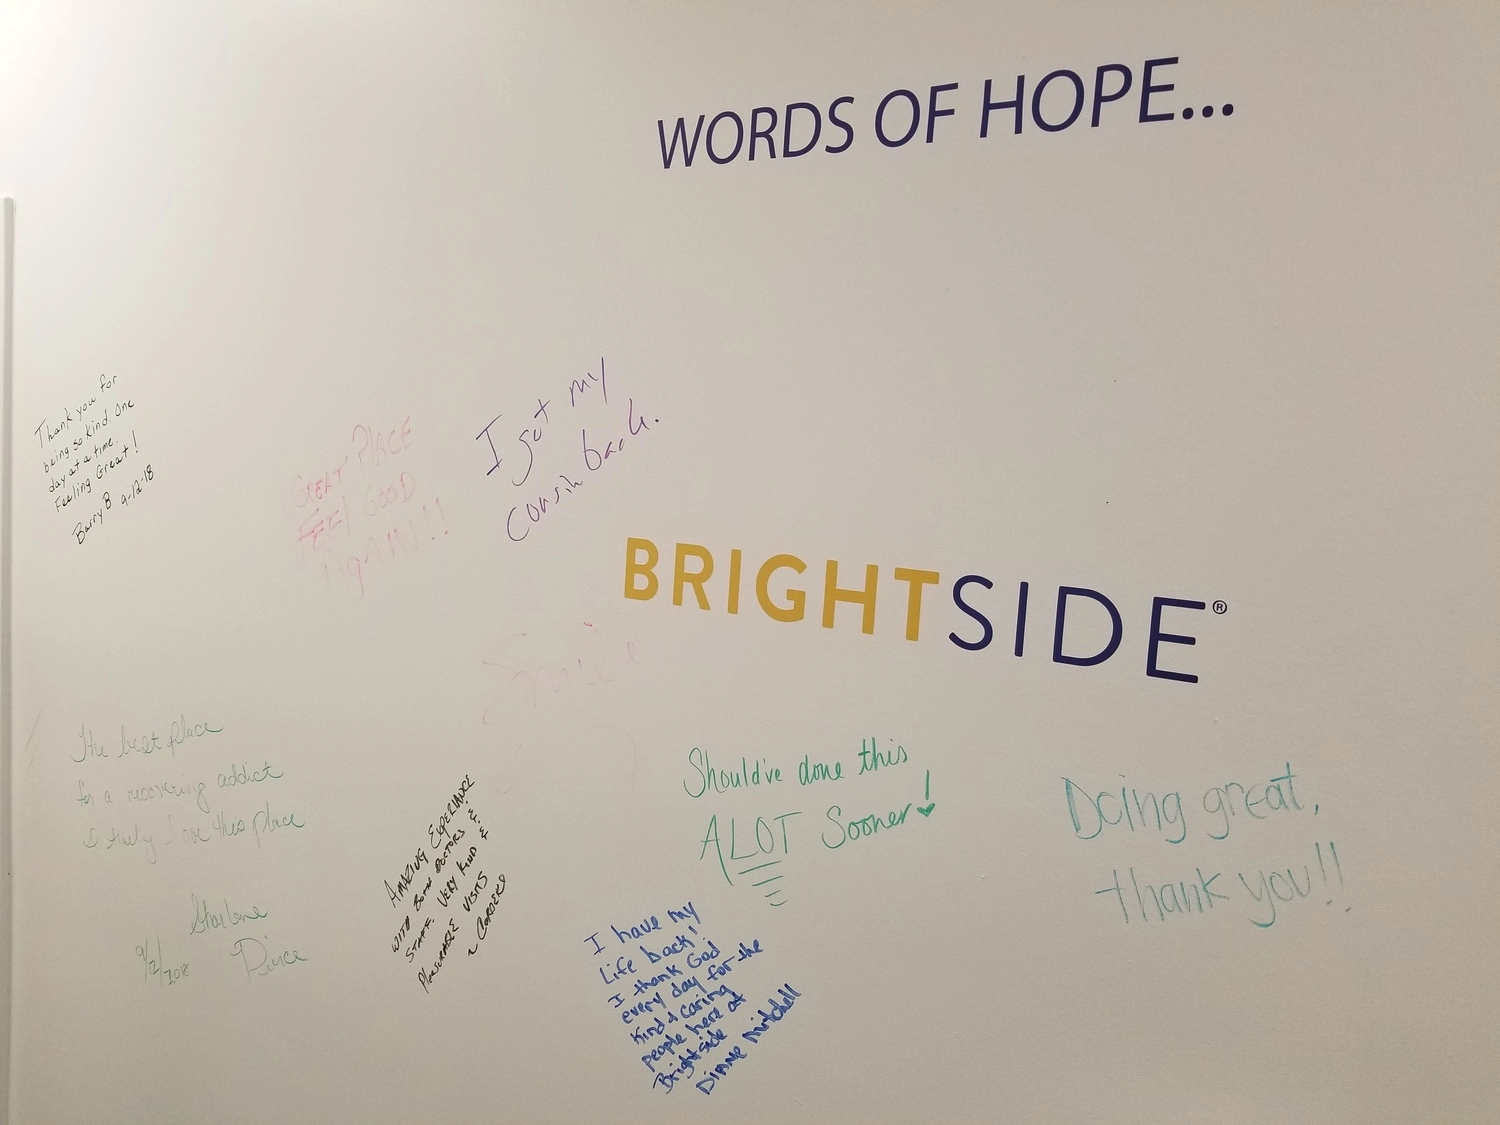 WORDS OF HOPE...
Thank you for
being so kind. One
day at a time.
Feeling Great!
Barry B 9-12-18
GREAT PLACE
FEEl GOOD
AgAIN!!
I got my
cousin back.
BRIGHTSIDE®
Smile
The best place
for a recovering addict
I truly love this place
Sharlene
9/12/2018
AMAZING EXPERIENCE
WITH BOTH DOCTORS &
STAFF. VERY KIND &
PLEASURABLE VISITS
~ CORDERO
Should've done this
ALOT Sooner!
Doing great,
thank you!!
I have my
Life back!
I thank God
every day for the
Kind & caring
people here at
Brightside
Diane Mitchell